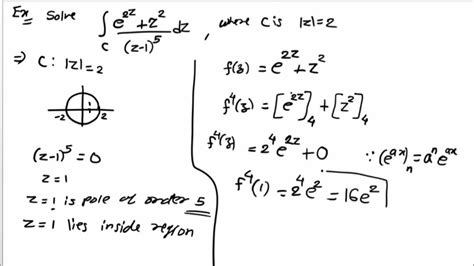 Ex Solve ∫_C (e^{2z} + z^2)/(z-1)^5 dz, where C is |z|=2
⇒ C: |z|=2
-2 1 2
(z-1)^5 = 0
z = 1
z = 1 is pole of order 5
z = 1 lies inside region
f(z) = e^{2z} + z^2
f^4(z) = [e^{2z}]_4 + [z^2]_4
f^4(z) = 2^4 e^{2z} + 0 ∵ (e^{ax})_n = a^n e^{ax}
f^4(1) = 2^4 e^2 = 16e^2